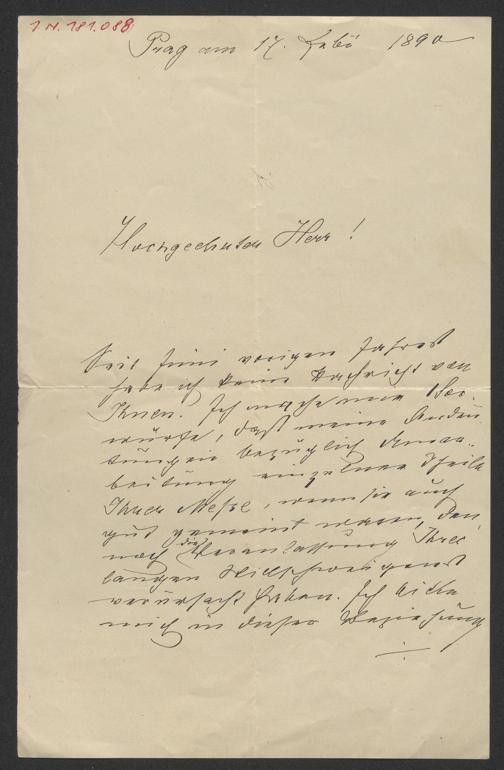 I.N. 181.088
Prag am 17. Febr 1890
Hochgeehrter Herr!
Seit Juni vorigen Jahres
habe ich keine Nachricht von
Ihnen. Ich mache mir Vor-
würfe, daß meine Andeu
tungen bezüglich Umar-
beitung einzelner Theile
Ihrer Messe, wenn sie auch
gut gemeint waren, den
noch die Veranlassung Ihres
langen Stillschweigens
verursacht haben. Ich bitte
mich in dieser Beziehung